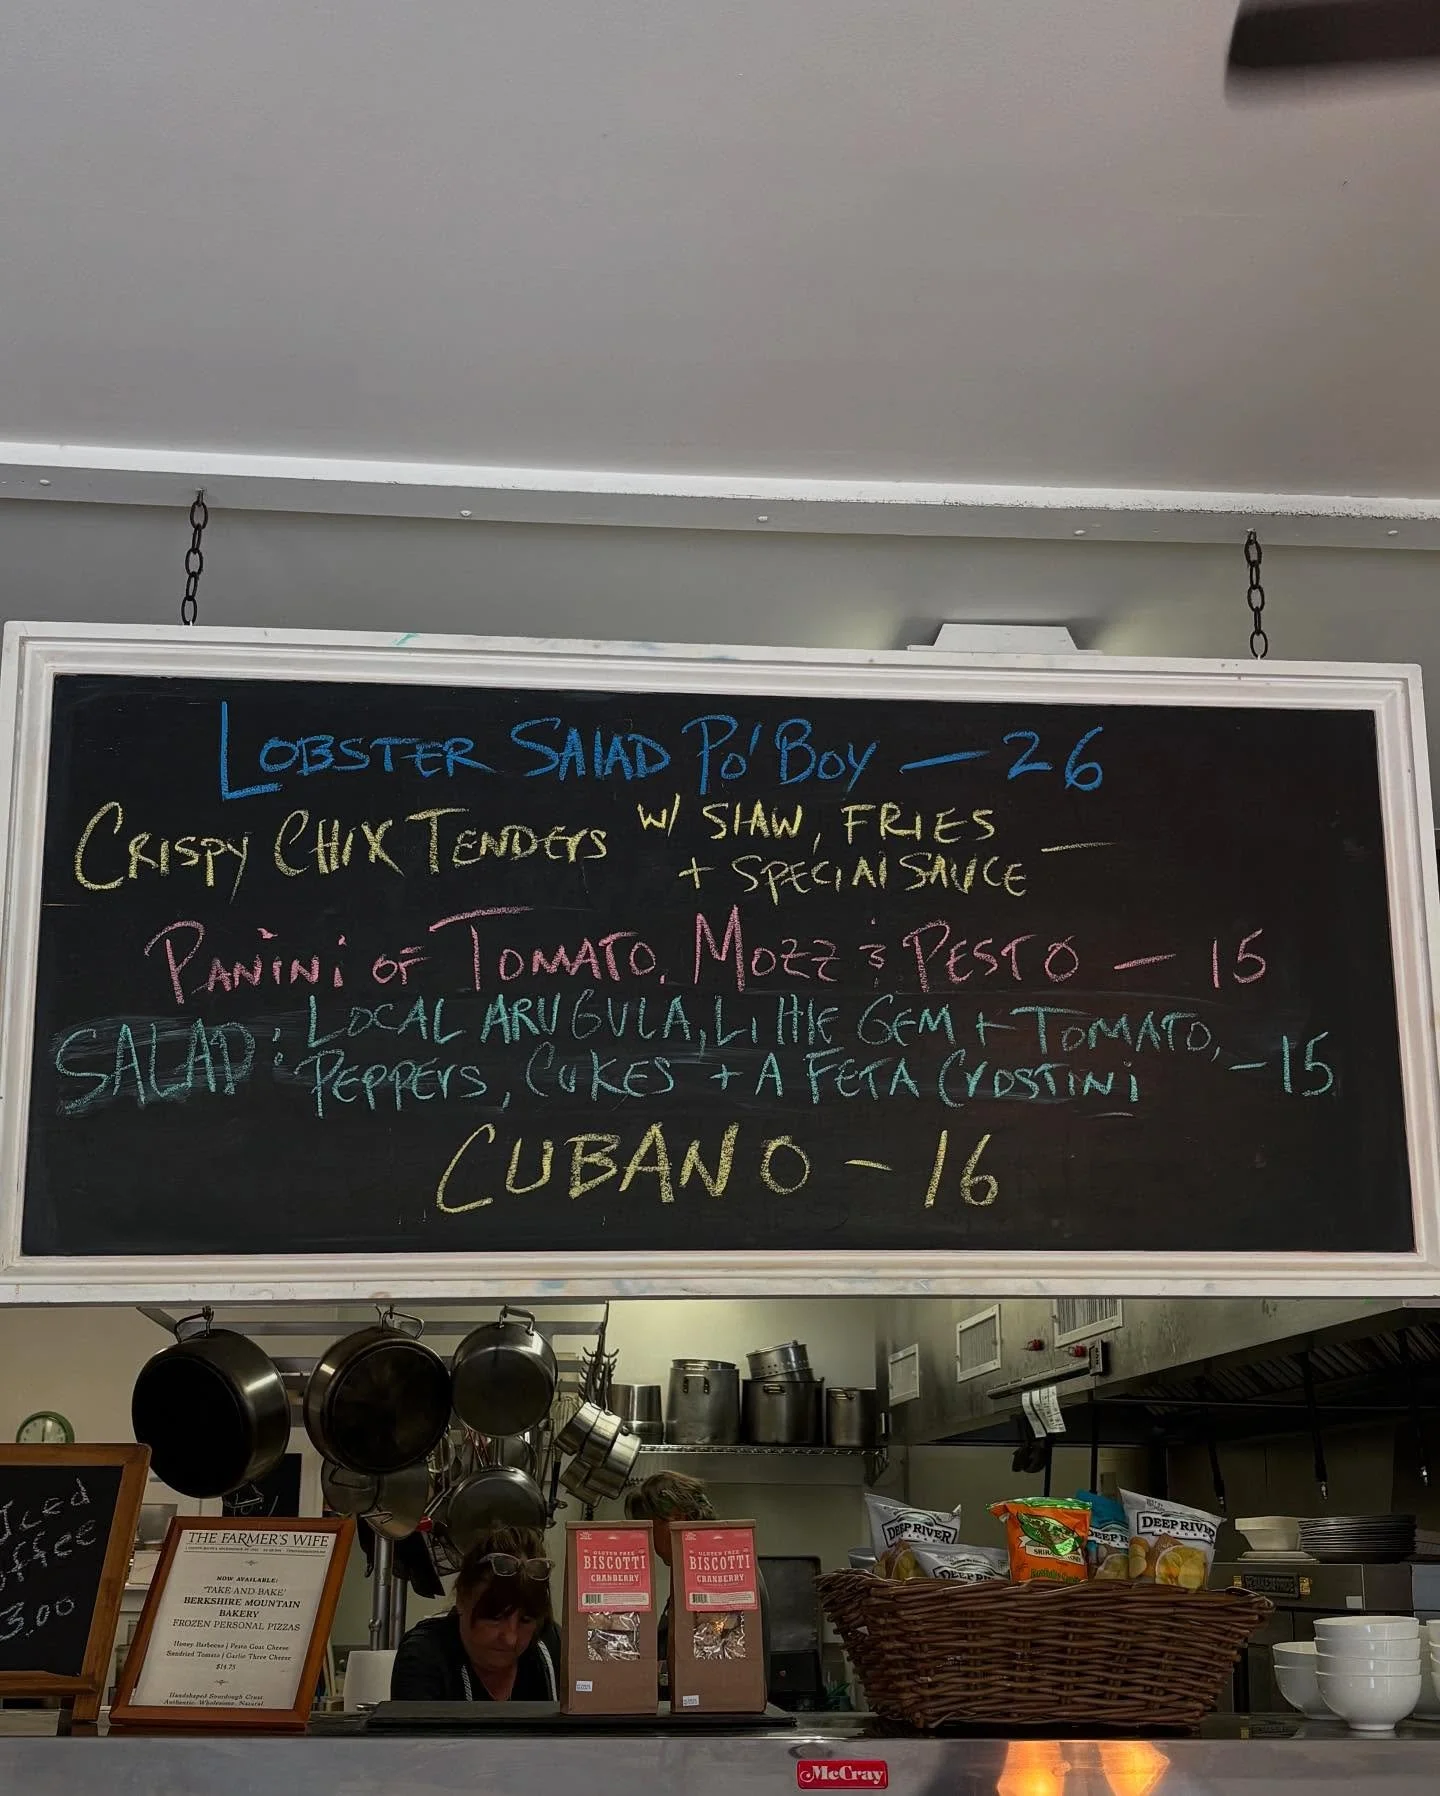 LOBSTER SALAD PO'BOY — 26
CRISPY CHIX TENDERS W/ SLAW, FRIES
+ SPECIAL SAUCE —
PANINI OF TOMATO, MOZZ & PESTO — 15
SALAD: LOCAL ARUGULA, LITTLE GEM + TOMATO,
PEPPERS, CUKES + A FETA CROSTINI - 15
CUBANO - 16
Iced
offee
3.00
THE FARMER'S WIFE
NOW AVAILABLE:
'TAKE AND BAKE'
BERKSHIRE MOUNTAIN
BAKERY
FROZEN PERSONAL PIZZAS
Honey Barbecue | Pesto Goat Cheese
Sundried Tomato | Garlic Three Cheese
$14.75
Handshaped Sourdough Crust
Authentic. Wholesome. Natural.
GLUTEN FREE
BISCOTTI
CRANBERRY
GLUTEN FREE
BISCOTTI
CRANBERRY
DEEP RIVER
DEEP RIVER
DEEP RIVER
DEEP RIVER
McCray